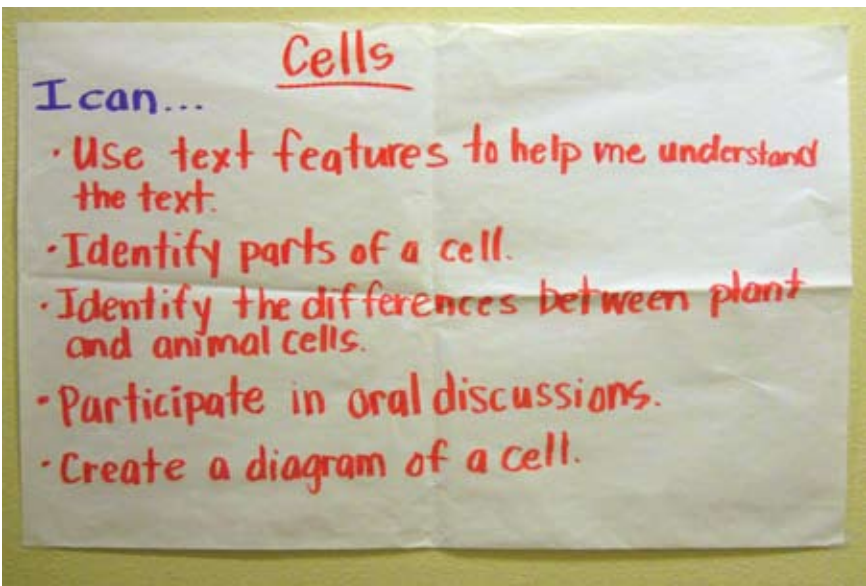 Cells
I can...
· Use text features to help me understand
the text.
· Identify parts of a cell.
· Identify the differences between plant
and animal cells.
· Participate in oral discussions.
· Create a diagram of a cell.